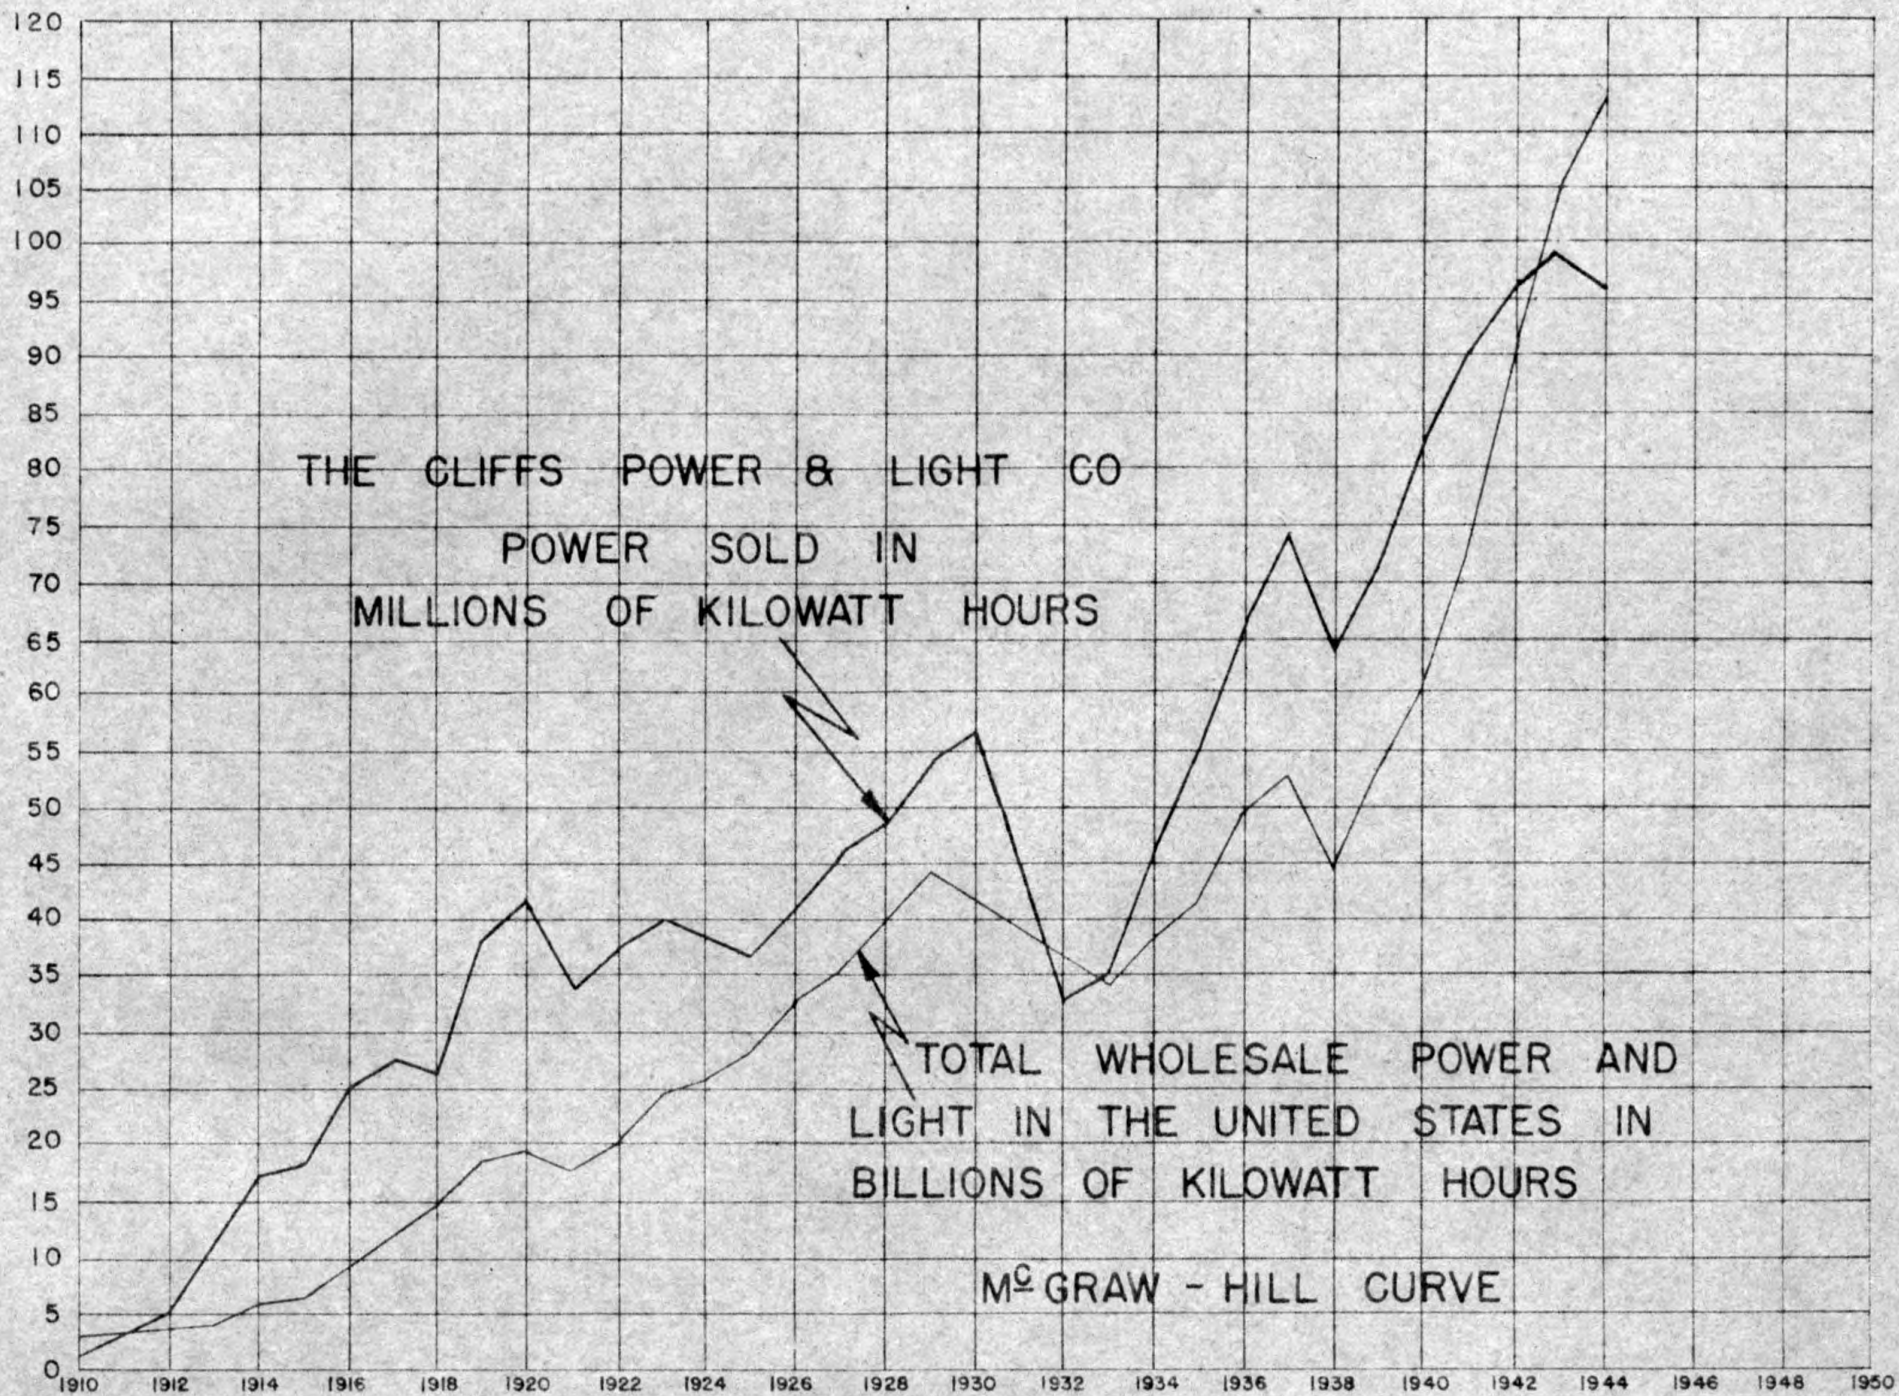 120
115
110
105
100
95
90
85
80
75
70
65
60
55
50
45
40
35
30
25
20
15
10
5
0
THE CLIFFS POWER & LIGHT CO
POWER SOLD IN
MILLIONS OF KILOWATT HOURS
TOTAL WHOLESALE POWER AND
LIGHT IN THE UNITED STATES IN
BILLIONS OF KILOWATT HOURS
Mc GRAW - HILL CURVE
1910 1912 1914 1916 1918 1920 1922 1924 1926 1928 1930 1932 1934 1936 1938 1940 1942 1944 1946 1948 1950